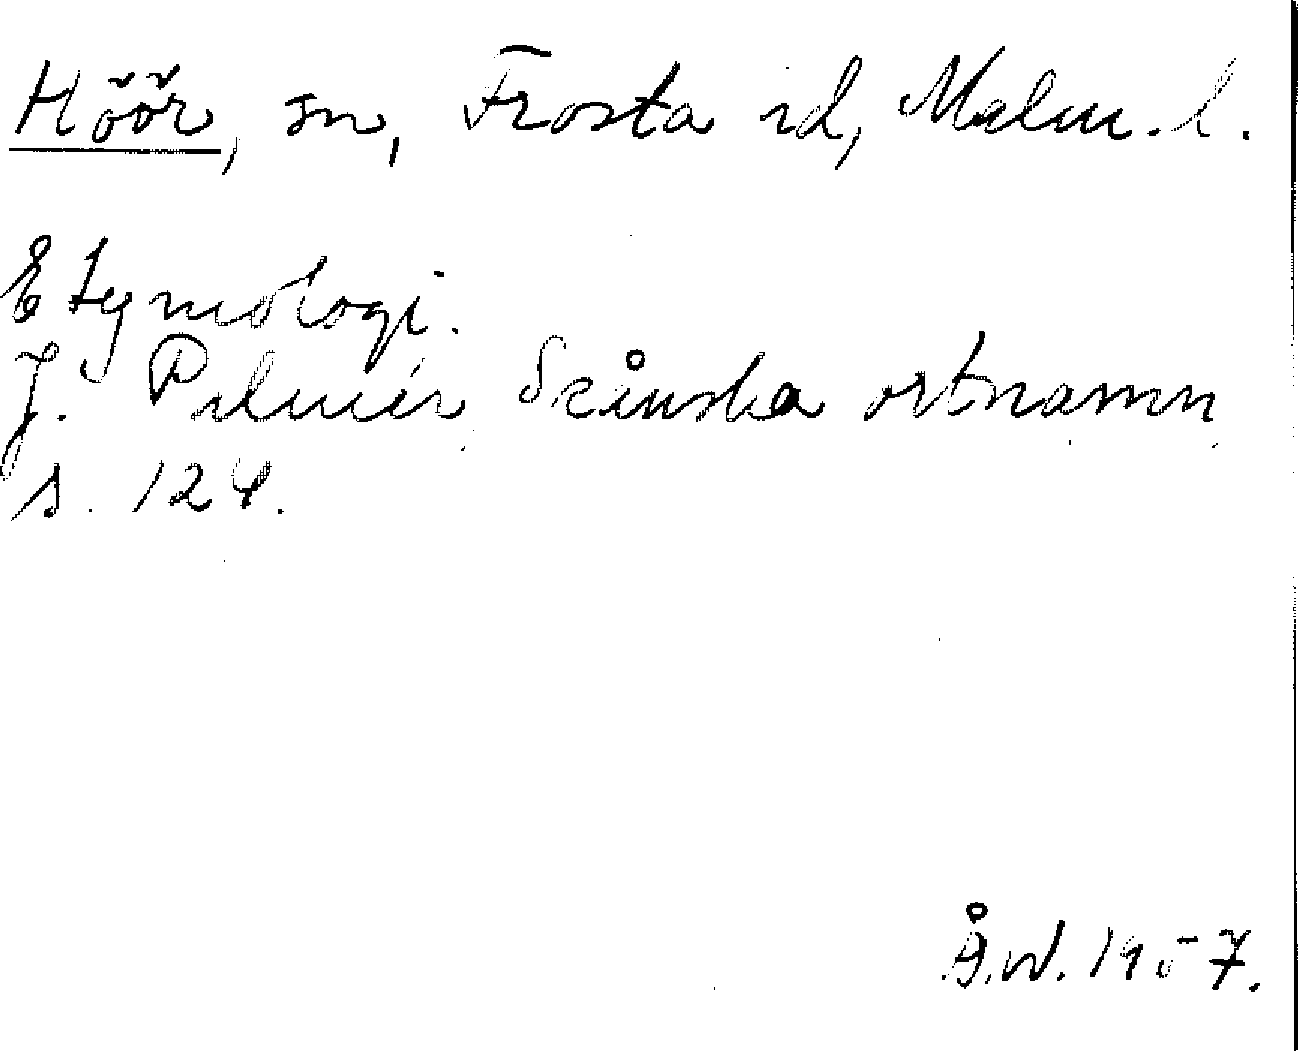 Höör, sn, Frosta hd, Malm. l.
Etymologi.
J. Palmér, Skånska ortnamn
s. 124.
Å.W. 1957.